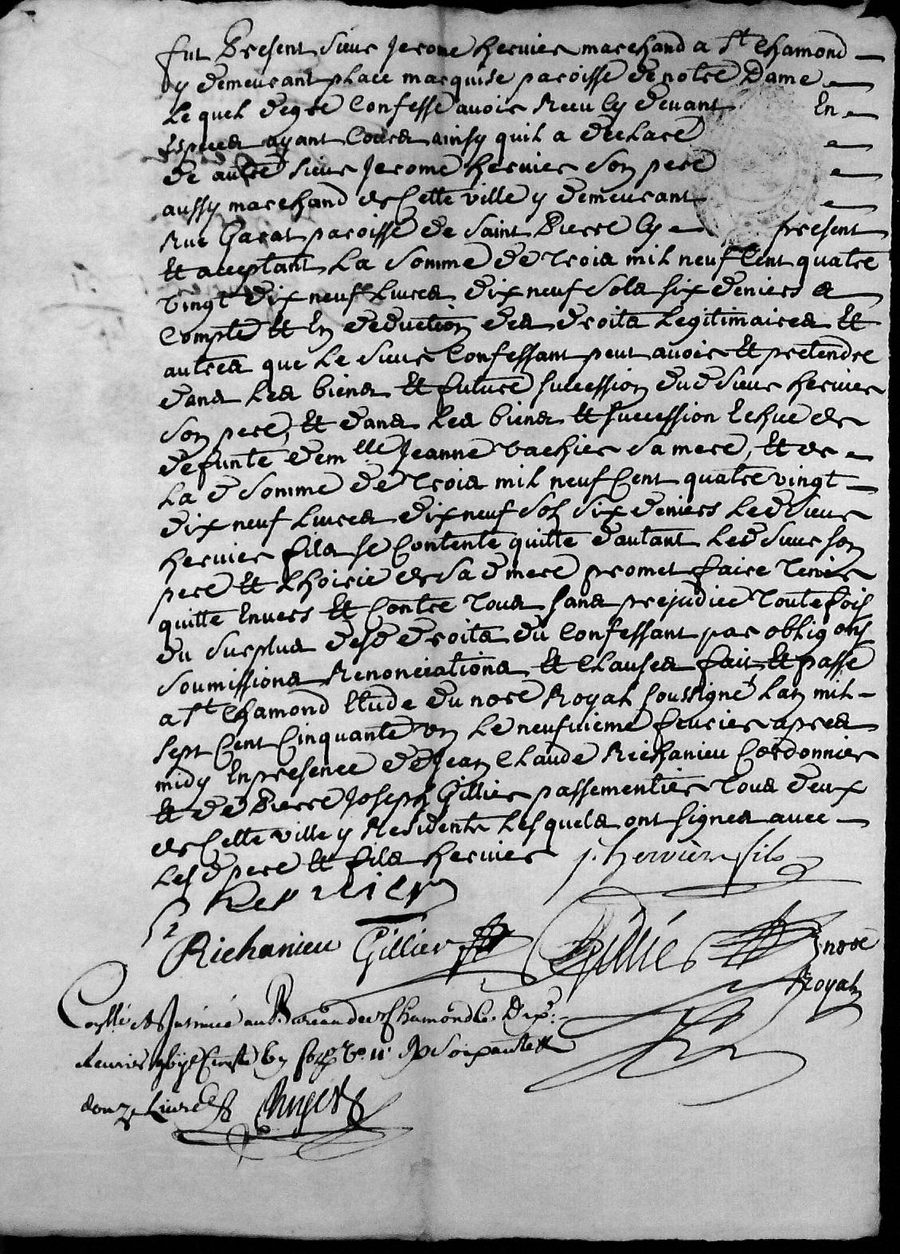 fut Present sieur Jerome hervier marchand a St Chamond
y demeurant place marquise paroisse de notre Dame
Lequel degré Confesse avoir Receu Cy devant En
Especes ayant Cours ainsy quil a declaré
de autre sieur Jerome hervier son pere
aussy marchand de Cette ville y demeurant
Rue Garat paroisse de saint Pierre Cy present
Et aceptant La somme de trois mil neuf Cent quatre
vingt dix neuf Livres dix neuf sols six deniers a
Compte Et En deduction des droits Legitimaires Et
autres que Le sieur Confessant peut avoir Et pretendre
dans Les biens Et future sucession dud sieur hervier
son pere, Et dans Les biens Et succession Echue de
defunte demlle Jeanne vachier sa mere, Et de
La d somme de trois mil neuf Cent quatre vingt
dix neuf Livres dix neuf sols six deniers Led sieur
hervier fils se Contente quitte dautant Led sieur son
pere Et Lhoirie de sa d mere promet faire tenir
quitte Envers Et Contre tous sans prejudice toutefois
du surplus desd droits du Confessant par obligons
soumissions Renonciations Et Clauses fait Et passé
a St Chamond Etude du nore Royal soussigné Lan mil
sept Cent Cinquante un Le neufvieme fevrier apres
midy En presence de Jean Claude Richanieu Cordonnier
Et de Pierre Joseph Gillier passementier tous deux
de Cette ville y Residents Lesquels ont signes avec
Lesd pere Et fils hervier J. hervier fils
hervier
Richanieu Gillier nore
Royal
Conllé et Insinué au Bureau de St Chamond Le Dix
fevrier soixante
douze Livres